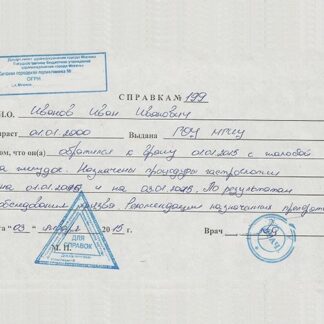 Департамент здравоохранения города Москвы
Государственное бюджетное учреждение
здравоохранения города Москвы
городская поликлиника №
ОГРН
г. Москва
СПРАВКА № 199
И.О. Иванов Иван Иванович
раст 01.01.2000 Выдана
ом, что он(а) обратился к врачу 01.01.2015 с жалобой
на желудок. Назначены процедуры гастроскопии
на 01.01.2015 и на 03.01.2015. По результатам
обследования Рекомендации
та "03" 2015 Врач
М. П.
ДЛЯ
СПРАВОК
ВРАЧ